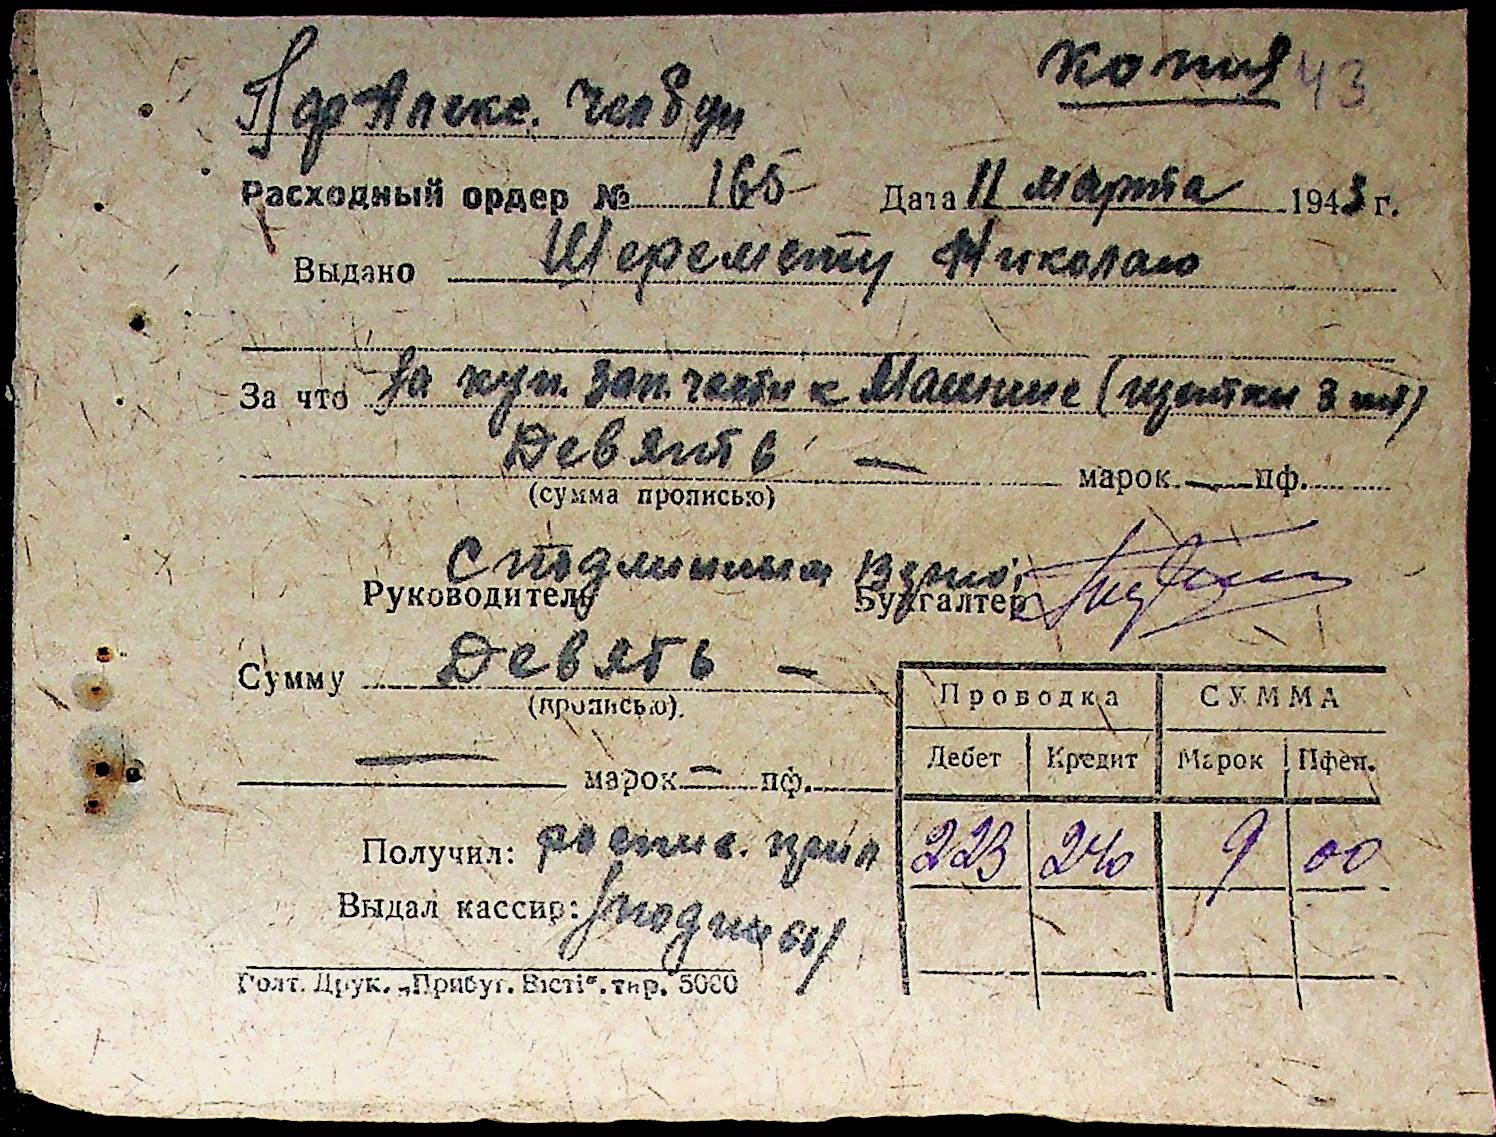 Копия 43
Алекс.
Расходный ордер № 165 Дата 11 марта 1943 г.
Выдано Шеремету Николаю
За что За куп. зап. части к Машине (щетки 3 шт)
Девять —
(сумма прописью) марок — пф.
С подлинным верно:
Руководитель Бухгалтер
Сумму Девять —
(прописью).
— марок — пф.
Проводка СУММА
Дебет Кредит Марок Пфен.
223 240 9 00
Получил:
Выдал кассир: /подписи/
Голт. Друк. „Прибуг. Вісті“. тир. 5000